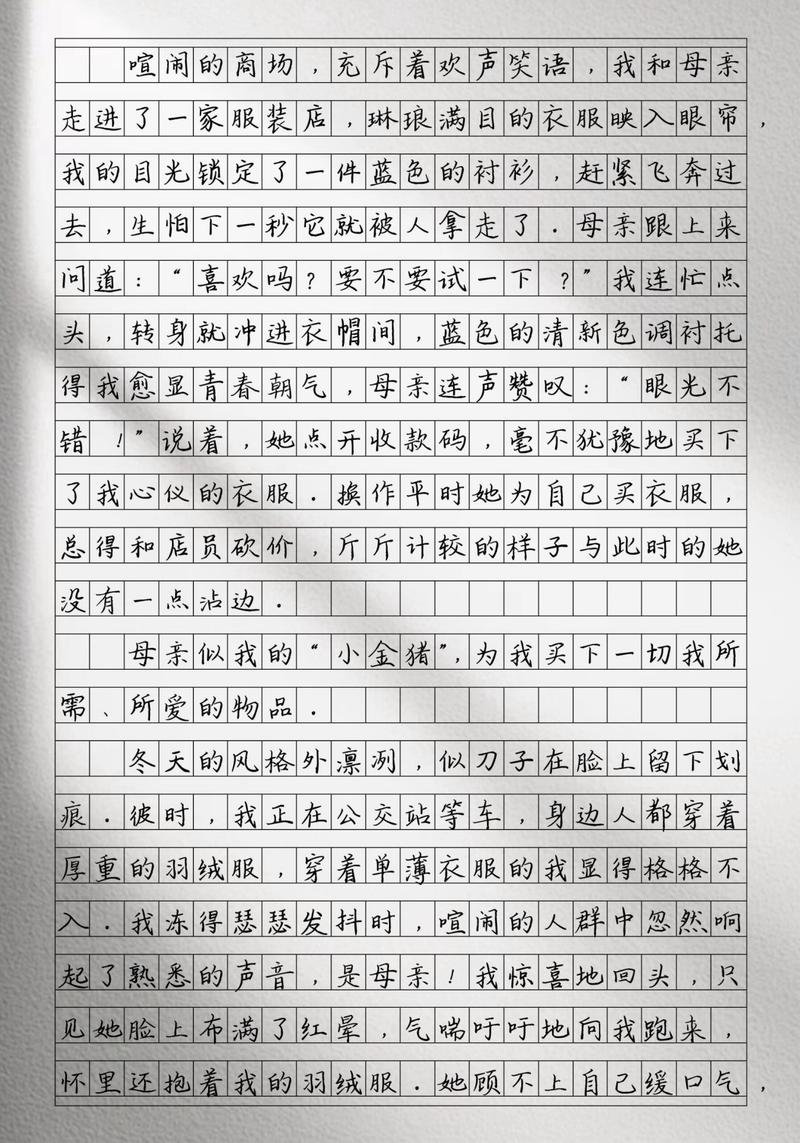 喧闹的商场，充斥着欢声笑语，我和母亲
走进了一家服装店，琳琅满目的衣服映入眼帘，
我的目光锁定了一件蓝色的衬衫，赶紧飞奔过
去，生怕下一秒它就被人拿走了．母亲跟上来
问道：“喜欢吗？要不要试一下？”我连忙点
头，转身就冲进衣帽间，蓝色的清新色调衬托
得我愈显青春朝气，母亲连声赞叹：“眼光不
错！”说着，她点开收款码，毫不犹豫地买下
了我心仪的衣服．换作平时她为自己买衣服，
总得和店员砍价，斤斤计较的样子与此时的她
没有一点沾边．
母亲似我的“小金猪”，为我买下一切我所
需、所爱的物品．
冬天的风格外凛冽，似刀子在脸上留下划
痕．彼时，我正在公交站等车，身边人都穿着
厚重的羽绒服，穿着单薄衣服的我显得格格不
入．我冻得瑟瑟发抖时，喧闹的人群中忽然响
起了熟悉的声音，是母亲！我惊喜地回头，只
见她脸上布满了红晕，气喘吁吁地向我跑来，
怀里还抱着我的羽绒服．她顾不上自己缓口气，